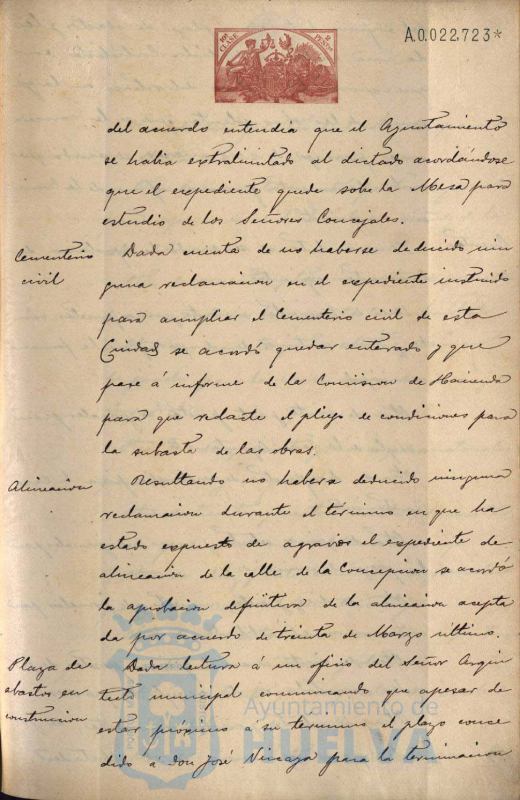 10ª CLASE 2 PESETAS
A.0.022.723*
del acuerdo entendia que el Ayuntamiento
se habia extralimitado al dictado acordándose
que el expediente quede sobe la Mesa para
estudio de los Señores Concejales.
Cementerio civil
Dada cuenta de no haberse deducido nin
guna reclamacion en el expediente instruido
para ampliar el Cementerio civil de esta
Ciudad se acordó quedar enterado y que
pase á informe de la Comision de Hacienda
para que redacte el pliego de condiciones para
la subasta de las obras.
Alineacion
Resultando no haberse deducido ninguna
reclamacion durante el término en que ha
estado expuesto de agravios el expediente de
alineacion de la calle de la Concepcion se acordó
la aprobacion definitiva de la alineacion acepta
da por acuerdo de treinta de Marzo último.
Plaza de
abastos en
construccion
Dada lectura á un oficio del Señor Arqui
tecto municipal comunicando que apesar de
estar próximo á su termino el plazo conce
dido á Don José Vizcaya para la terminacion
Ayuntamiento de
HUELVA